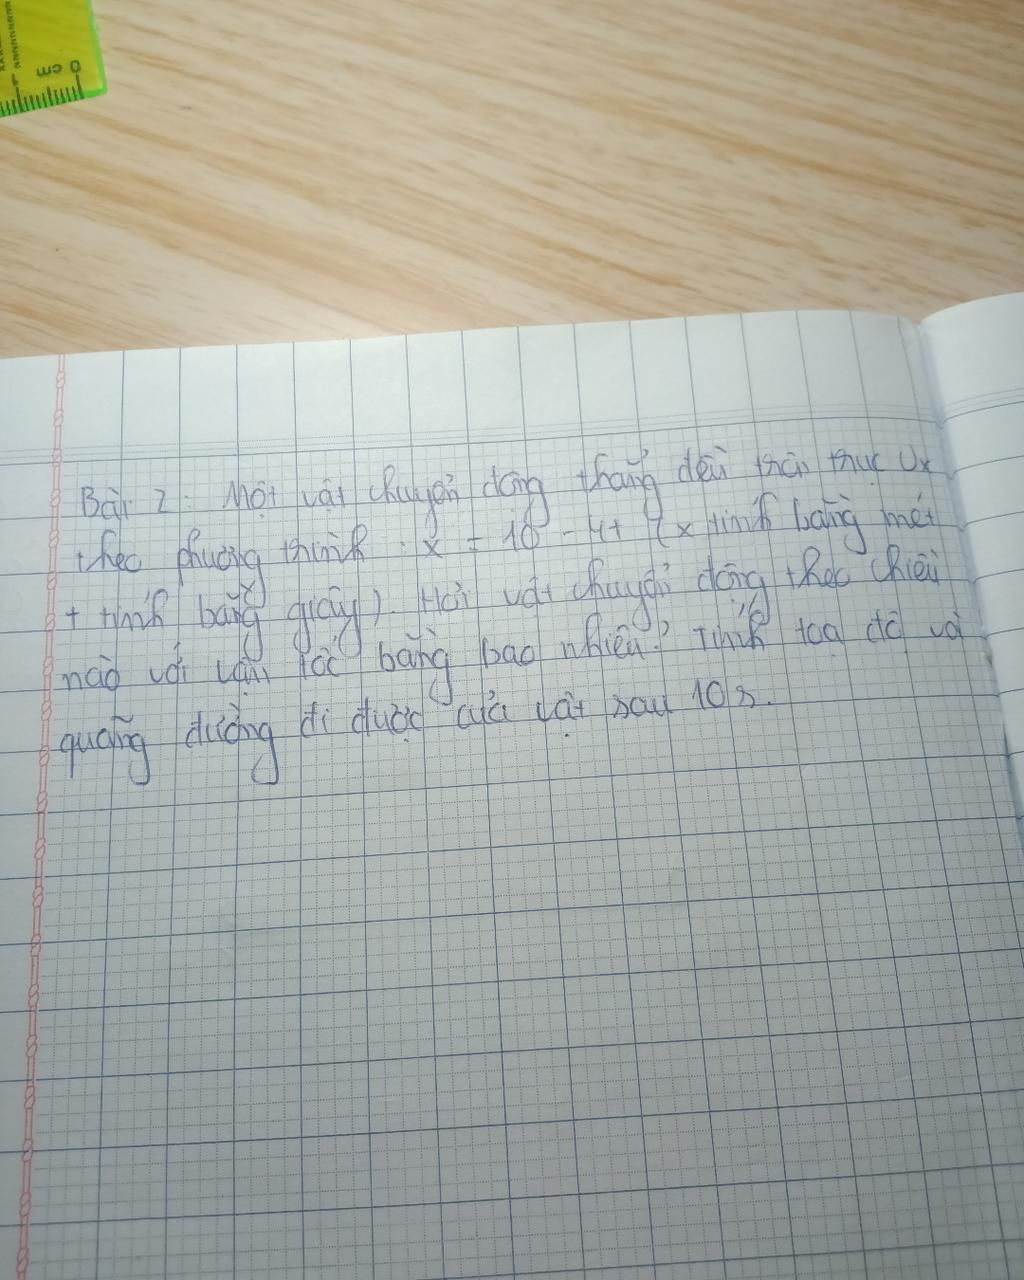 0 cm
Bài 2: Một vật chuyển động thẳng đều trên trục Ox
theo phương trình : x = 10 - 4t (x tính bằng mét
t tính bằng giây). Hỏi vật chuyển động theo chiều
nào với vận tốc bằng bao nhiêu? Tính toạ độ và
quãng đường đi được của vật sau 10s.